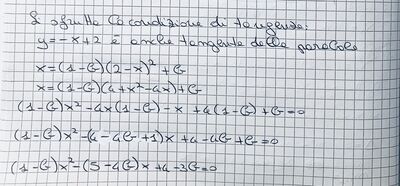 Si sfrutta la condizione di tangenza:
y=-x+2 è anche tangente della parabola
x=(1-G)(2-x)²+G
x=(1-G)(4+x²-4x)+G
(1-G)x²-4x(1-G)-x+4(1-G)+G=0
(1-G)x²-(4-4G+1)x+4-4G+G=0
(1-G)x²-(5-4G)x+4-3G=0